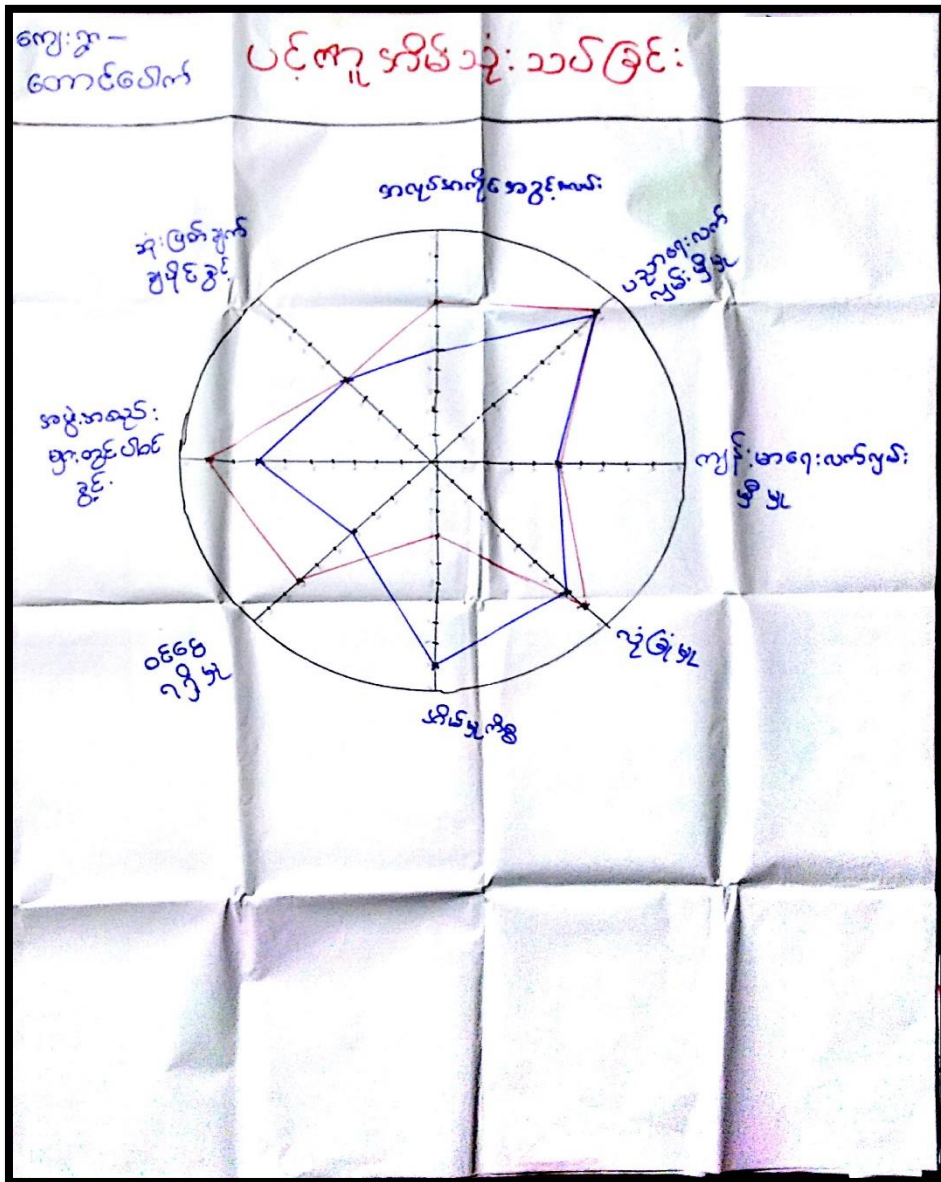 ကျေးရွာ -
တောင်ပေါက်
ပင့်ကူအိမ်သုံးသပ်ခြင်း
အလုပ်အကိုင်အခွင့်အလမ်း
ပညာရေးလက်
လှမ်းမှီမှု
ကျန်းမာရေးလက်လှမ်း
မှီမှု
လုံခြုံမှု
အိမ်မှုကိစ္စ
ဝင်ငွေ
ရရှိမှု
အဖွဲ့အစည်း
များတွင်ပါဝင်
ခွင့်
ဆုံးဖြတ်ချက်
ချပိုင်ခွင့်